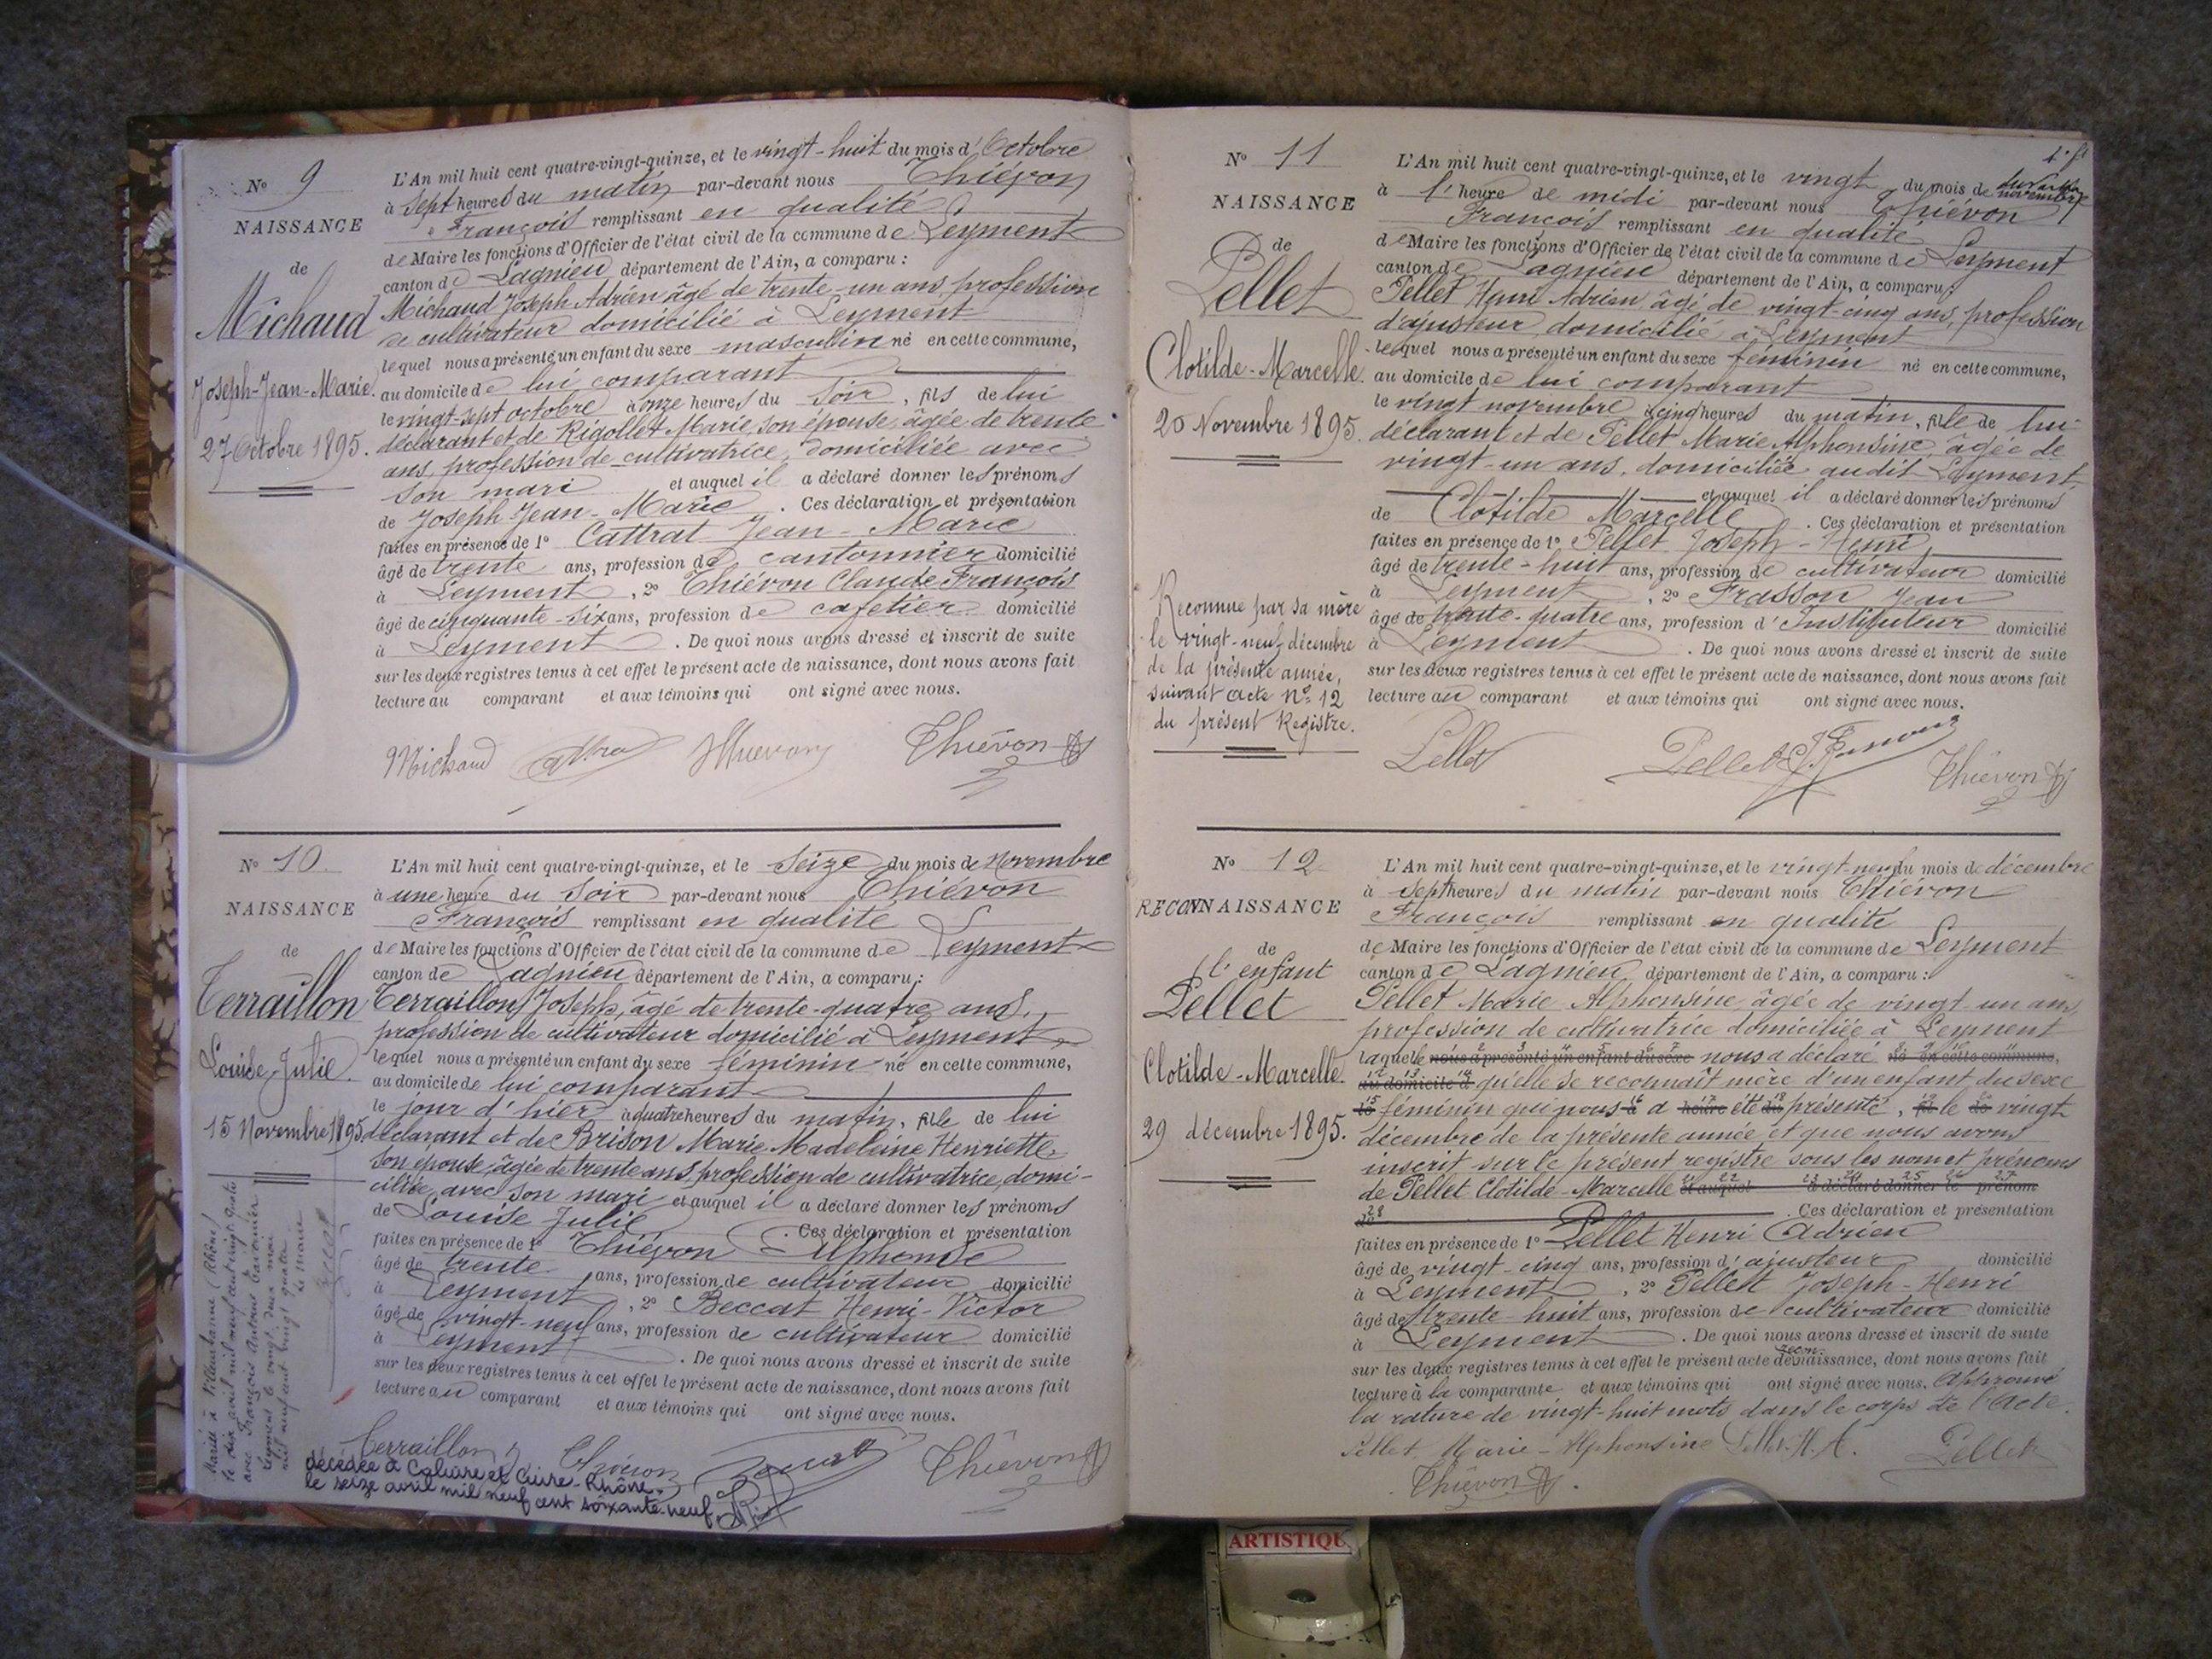 N° 9
NAISSANCE
de
Michaud
Joseph-Jean-Marie.
27 Octobre 1895.
L'An mil huit cent quatre-vingt-quinze, et le vingt-huit du mois d'Octobre
à sept heures du matin par-devant nous Thiévon
François remplissant en qualité
de Maire les fonctions d'Officier de l'état civil de la commune de Leyment
canton de Lagnieu département de l'Ain, a comparu :
Michaud Joseph Adrien âgé de trente-un ans, profession
de cultivateur domicilié à Leyment
lequel nous a présenté un enfant du sexe masculin né en cette commune,
au domicile de lui comparant
le vingt-sept octobre à onze heures du soir, fils de lui
déclarant et de Rigollet Marie, son épouse, âgée de trente
ans, profession de cultivatrice, domiciliée avec
son mari et auquel il a déclaré donner les prénoms
de Joseph Jean-Marie. Ces déclaration et présentation
faites en présence de 1° Cattrat Jean-Marie
âgé de trente ans, profession de cantonnier domicilié
à Leyment, 2° Thiévon Claude François
âgé de cinquante-six ans, profession de cafetier domicilié
à Leyment. De quoi nous avons dressé et inscrit de suite
sur les deux registres tenus à cet effet le présent acte de naissance, dont nous avons fait
lecture au comparant et aux témoins qui ont signé avec nous.
Michaud Thiévon
N° 10.
NAISSANCE
de
Terraillon
Louise Julie.
15 Novembre 1895.
L'An mil huit cent quatre-vingt-quinze, et le seize du mois de Novembre
à une heure du soir par-devant nous Thiévon
François remplissant en qualité
de Maire les fonctions d'Officier de l'état civil de la commune de Leyment
canton de Lagnieu département de l'Ain, a comparu :
Terraillon Joseph, âgé de trente-quatre ans,
profession de cultivateur domicilié à Leyment
lequel nous a présenté un enfant du sexe féminin né en cette commune,
au domicile de lui comparant
le jour d'hier à quatre heures du matin, fille de lui
déclarant et de Brison Marie Madeleine Henriette,
son épouse, âgée de trente ans, profession de cultivatrice, domi-
ciliée avec son mari et auquel il a déclaré donner les prénoms
de Louise Julie. Ces déclaration et présentation
faites en présence de 1° Thiévon Alphonse
âgé de trente ans, profession de cultivateur domicilié
à Leyment, 2° Beccat Henri-Victor
âgé de vingt-neuf ans, profession de cultivateur domicilié
à Leyment. De quoi nous avons dressé et inscrit de suite
sur les deux registres tenus à cet effet le présent acte de naissance, dont nous avons fait
lecture au comparant et aux témoins qui ont signé avec nous.
Terraillon Thiévon Thiévon
Marié à Villeurbanne (Rhône)
le dix avril mil neuf cent vingt quatre
avec François Antoine
Leyment le vingt deux mai
mil neuf cent vingt quatre
Le maire
décédée à Caluire et Cuire - Rhône -
le seize avril mil neuf cent soixante-neuf.
N° 11
NAISSANCE
de
Pellet
Clotilde-Marcelle.
20 Novembre 1895.
Reconnue par sa mère
le vingt-neuf décembre
de la présente année,
suivant acte N° 12
du présent Registre.
L'An mil huit cent quatre-vingt-quinze, et le vingt du mois de novembre
à l'heure de midi par-devant nous Thiévon
François remplissant en qualité
de Maire les fonctions d'Officier de l'état civil de la commune de Leyment
canton de Lagnieu département de l'Ain, a comparu :
Pellet Henri Adrien âgé de vingt-cinq ans, profession
d'ajusteur domicilié à Leyment
lequel nous a présenté un enfant du sexe féminin né en cette commune,
au domicile de lui comparant
le vingt novembre à cinq heures du matin, fille de lui
déclarant et de Pellet Marie Alphonsine, âgée de
vingt-un ans, domiciliée audit Leyment
et auquel il a déclaré donner les prénoms
de Clotilde Marcelle. Ces déclaration et présentation
faites en présence de 1° Pellet Joseph-Henri
âgé de trente-huit ans, profession de cultivateur domicilié
à Leyment, 2° Frasson Jean
âgé de trente-quatre ans, profession d'Instituteur domicilié
à Leyment. De quoi nous avons dressé et inscrit de suite
sur les deux registres tenus à cet effet le présent acte de naissance, dont nous avons fait
lecture au comparant et aux témoins qui ont signé avec nous.
Pellet Pellet Thiévon
N° 12
RECONNAISSANCE
de
l'enfant
Pellet
Clotilde-Marcelle.
29 décembre 1895.
L'An mil huit cent quatre-vingt-quinze, et le vingt-neuf du mois de décembre
à sept heures du matin par-devant nous Thiévon
François remplissant en qualité
de Maire les fonctions d'Officier de l'état civil de la commune de Leyment
canton de Lagnieu département de l'Ain, a comparu :
Pellet Marie Alphonsine âgée de vingt-un ans,
profession de cultivatrice domiciliée à Leyment
laquelle nous a présenté un enfant du sexe nous a déclaré né en cette commune,
au domicile d qu'elle se reconnaît mère d'un enfant du sexe
le féminin qui nous à a heure été du présenté, fil le de vingt
décembre de la présente année, et que nous avons
inscrit sur le présent registre sous les nom et prénoms
de Pellet Clotilde-Marcelle et auquel a déclaré donner le prénom
de. Ces déclaration et présentation
faites en présence de 1° Pellet Henri Adrien
âgé de vingt-cinq ans, profession d'ajusteur domicilié
à Leyment, 2° Pellet Joseph-Henri
âgé de trente-huit ans, profession de cultivateur domicilié
à Leyment. De quoi nous avons dressé et inscrit de suite
sur les deux registres tenus à cet effet le présent acte de reconnaissance, dont nous avons fait
lecture à la comparante et aux témoins qui ont signé avec nous. Approuvé
la rature de vingt-huit mots dans le corps de l'Acte.
Pellet Marie-Alphonsine Pellet H. A. Pellet
Thiévon
ARTISTIQU